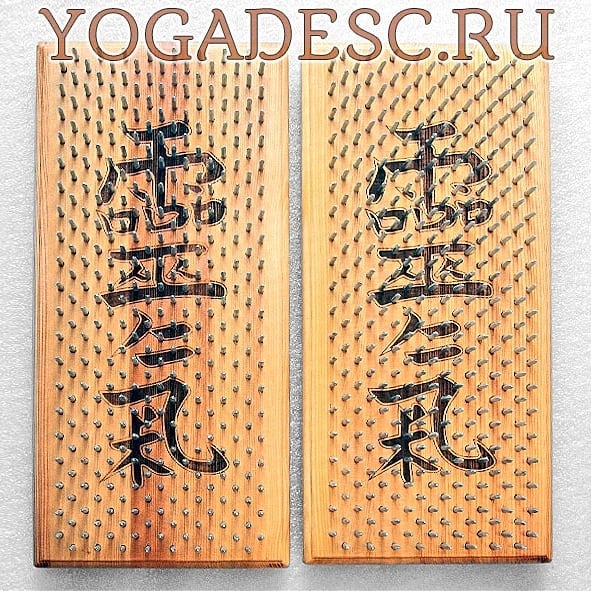 YOGADESC.RU
靈氣
靈氣